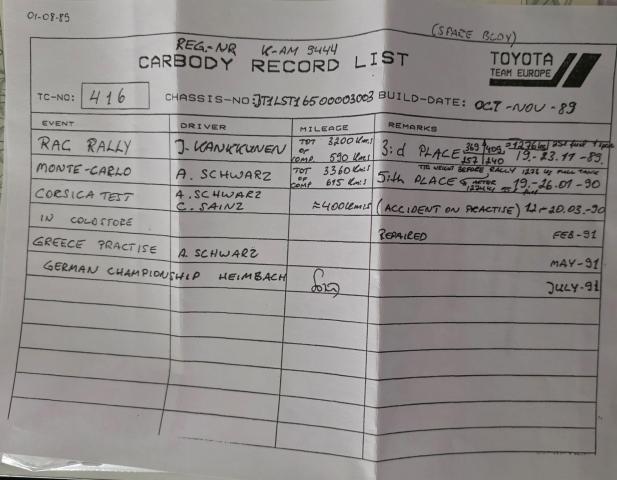 01-08-89
(SPACE BODY)
REG.-NR K-AM 9444
CARBODY RECORD LIST
TOYOTA
TEAM EUROPE
TC-NO: 416 CHASSIS-NO: JT1LST16500003003 BUILD-DATE: OCT-NOV-89
EVENT DRIVER MILEAGE REMARKS
RAC RALLY J. KANKKUNEN TOT OF COMP. 3200 Kms 590 Kms 3:d PLACE 19.-23.11-89
MONTE-CARLO A. SCHWARZ TOT OF COMP 3360 Kms 615 Kms 5:th PLACE 19-26.01-90
CORSICA TEST A. SCHWARZ
C. SAINZ ≈400 Kms (ACCIDENT ON PRACTISE) 12-20.03.-90
IN COLDSTORE REPAIRED FEB-91
GREECE PRACTISE A. SCHWARZ MAY-91
GERMAN CHAMPIONSHIP HEIMBACH JULY-91